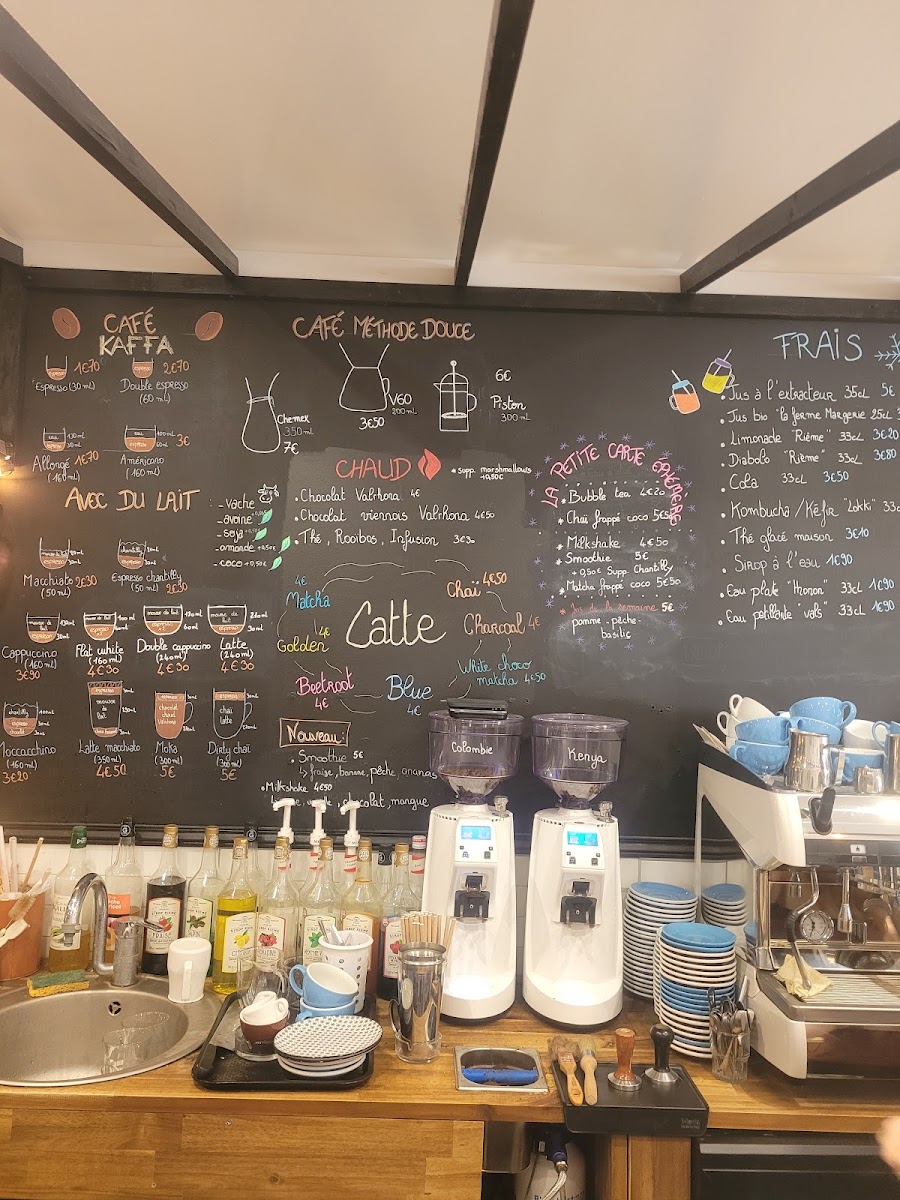 CAFÉ
KAFFA
Espresso (30 ml) 1€70
Double espresso 2€70
(60 ml)
Allongé 1€70
(160 ml)
Américano 3€
(160 ml)
AVEC DU LAIT
- vache
- avoine
- soja
- amande +0,50€
- coco +0,50€
Macchiato 2€30
(50 ml)
Espresso chantilly
(50 ml) 2€30
Cappuccino
(160 ml)
3€90
Flat white
(160 ml)
4€30
Double cappuccino
(240 ml)
4€30
Latte
(240 ml)
4€30
Moccacchino
(160 ml)
3€20
Latte macchiato
(350 ml)
4€50
Moka
(300 ml)
5€
Dirty chaï
(300 ml)
5€
CAFÉ MÉTHODE DOUCE
Chemex
350 ml
7€
V60
200 ml
3€50
6€
Piston
300 ml
CHAUD
* supp. marshmallows
+0,50€
• Chocolat Valrhona 4€
• Chocolat viennois Valrhona 4€50
• Thé, Rooibos, Infusion
Latte
4€
Matcha
Golden 4€
Beetroot
4€
Blue
4€
White choco
matcha 4€50
Charcoal 4€
Chaï 4€50
Nouveau:
• Smoothie 5€
↳ fraise, banane, pêche, ananas
• Milkshake 4€50
chocolat, mangue
LA PETITE CARTE ÉPHÉMÈRE
• Bubble tea 4€20
• Chaï frappé coco 5€50
• Milkshake 4€50
• Smoothie 5€
+0,50€ Supp. Chantilly
• Matcha frappé coco 5€50
• Jus de la semaine 5€
pomme - pêche -
basilic
FRAIS
• Jus à l'extracteur 35cl 5€
• Jus bio "la ferme Margerie 25cl
• Limonade "Rième" 33cl 3€20
• Diabolo "Rième" 33cl 3€80
• Cola 33cl 3€50
• Kombucha / Kéfir "Lökki"
• Thé glacé maison 3€10
• Sirop à l'eau 1€90
• Eau plate "thonon" 33cl 1€90
• Eau pétillante "vals" 33cl 1€90
Colombie
Kenya